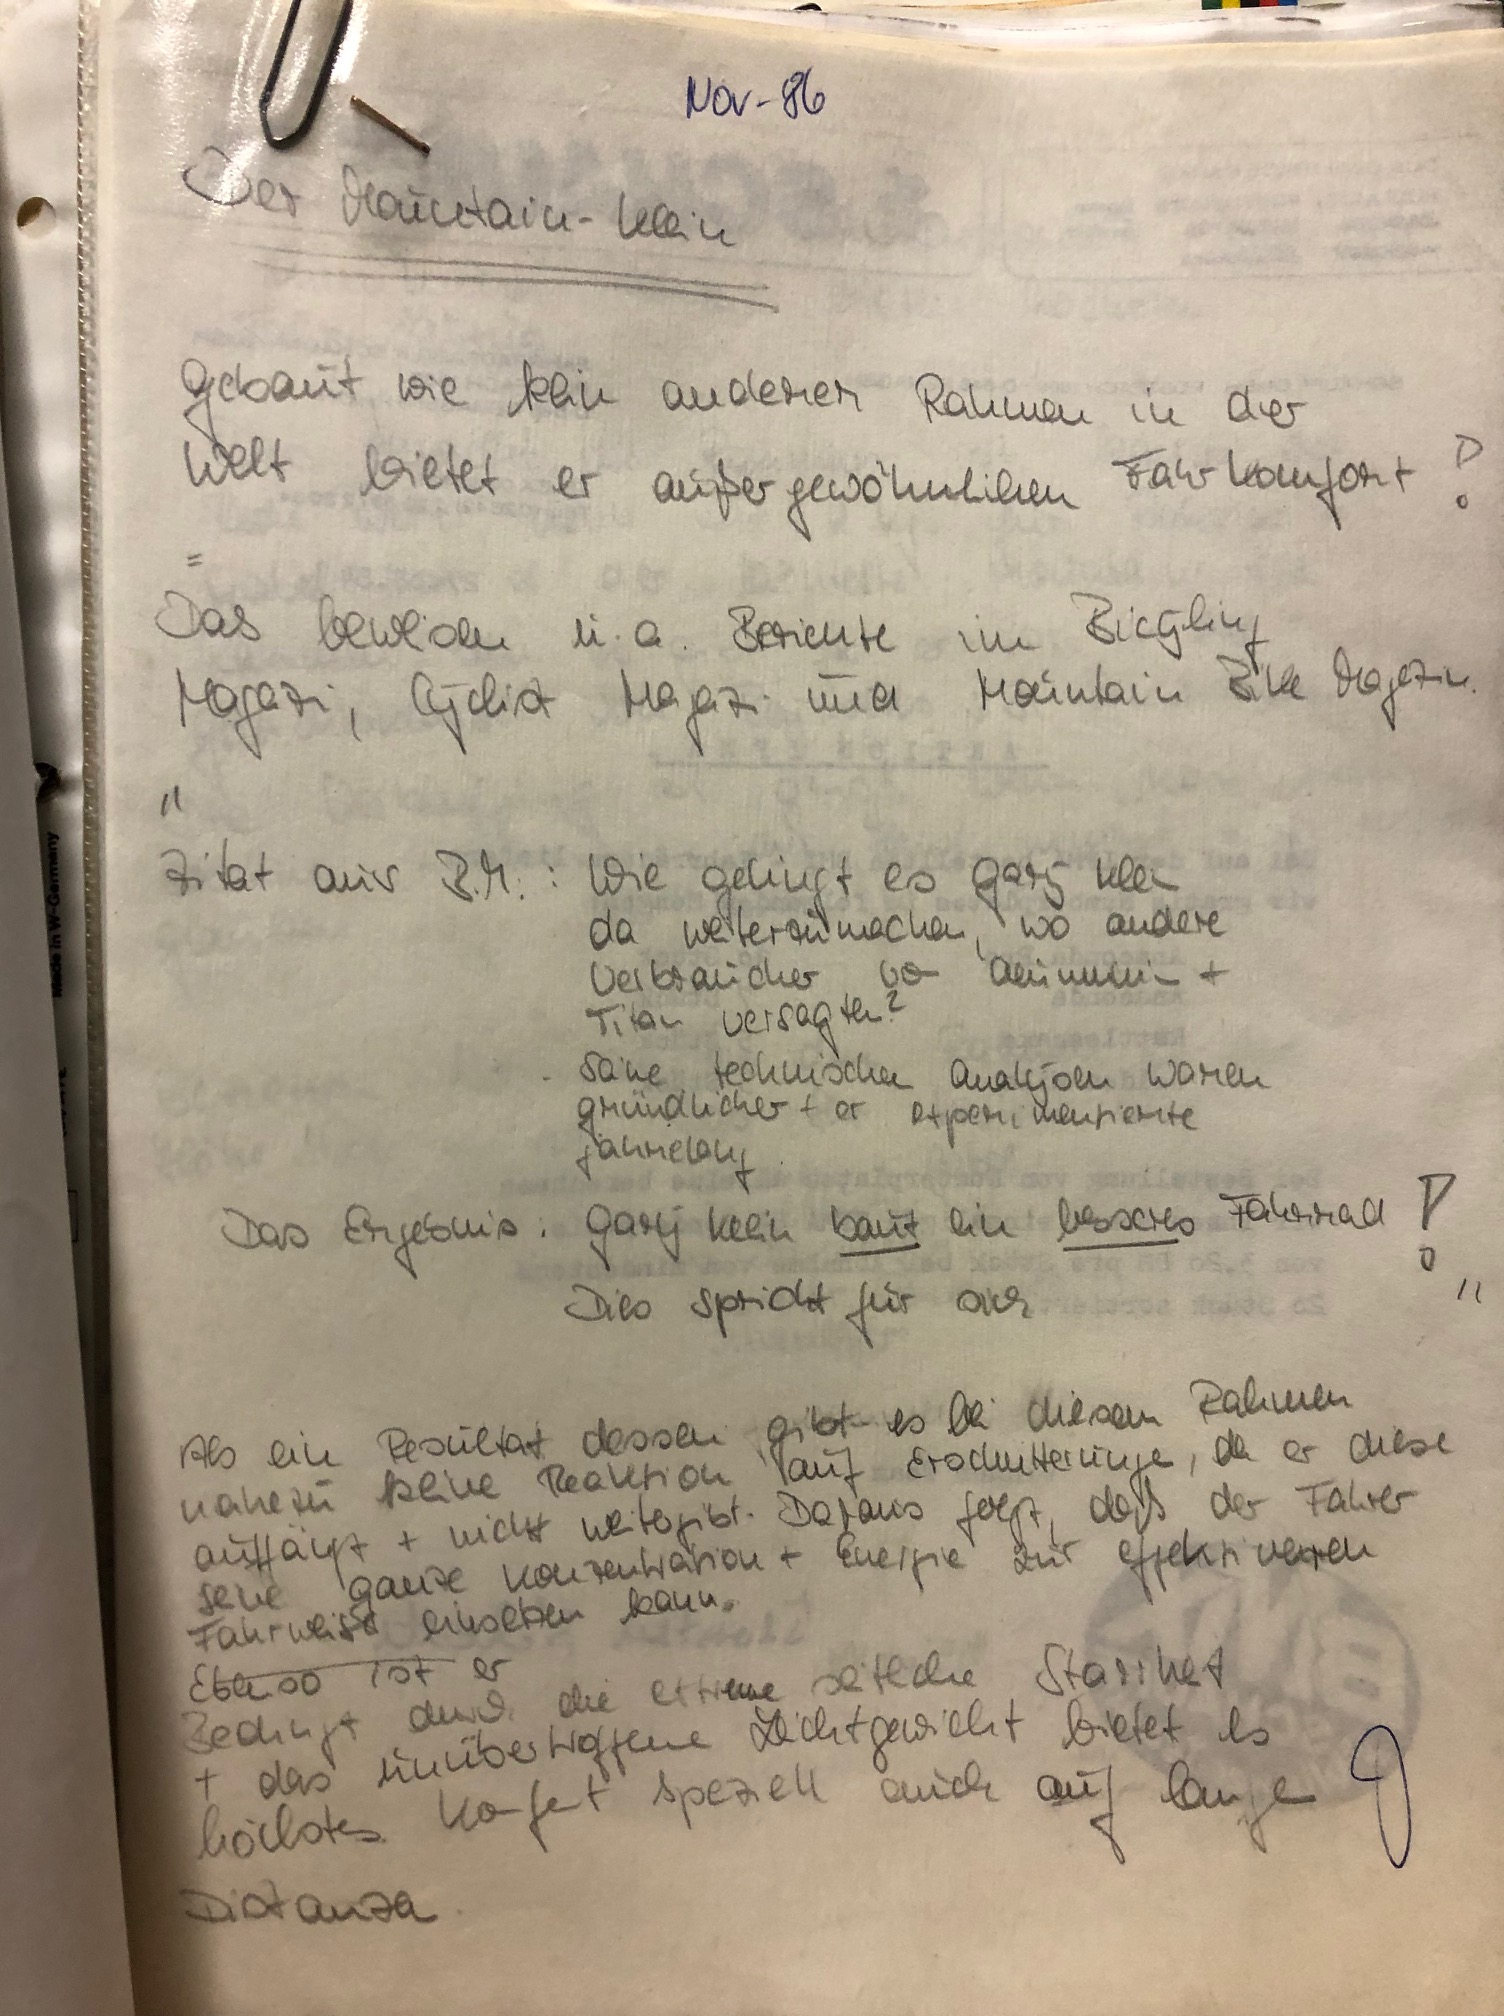 Nov-86
Der Mountain-Klein
gebaut wie kein anderer Rahmen in der
Welt bietet er außergewöhnlichen Fahrkomfort!
=
Das beweisen u.a. Berichte im Bicycling
Magazi, Cyclist Magazi und Mountain Bike Magazin.
"
Zitat aus B.M.: Wie gelingt es Gary Klein
da weiterzumachen, wo andere
Verbraucher von Aluminium +
Titan versagten?
Seine technischen Analysen waren
gründlicher + er experimentierte
jahrelang.
Das Ergebnis: Gary Klein baut ein besseres Fahrrad!
Dies spricht für sich "
Als ein Resultat dessen gibt es bei diesem Rahmen
nahezu keine Reaktion auf Erschütterunge, da er diese
auffängt + nicht weitergibt. Daraus folgt, daß der Fahrer
seine ganze Konzentration + Energie zur effektiveren
Fahrweise einsetzen kann.
Ebenso ist er
Bedingt durch die extreme seitliche Starrheit
+ das unübertroffene Leichtgewicht bietet es
höchstes Komfort speziell auch auf lange
Distanzen.
Made in W-Germany